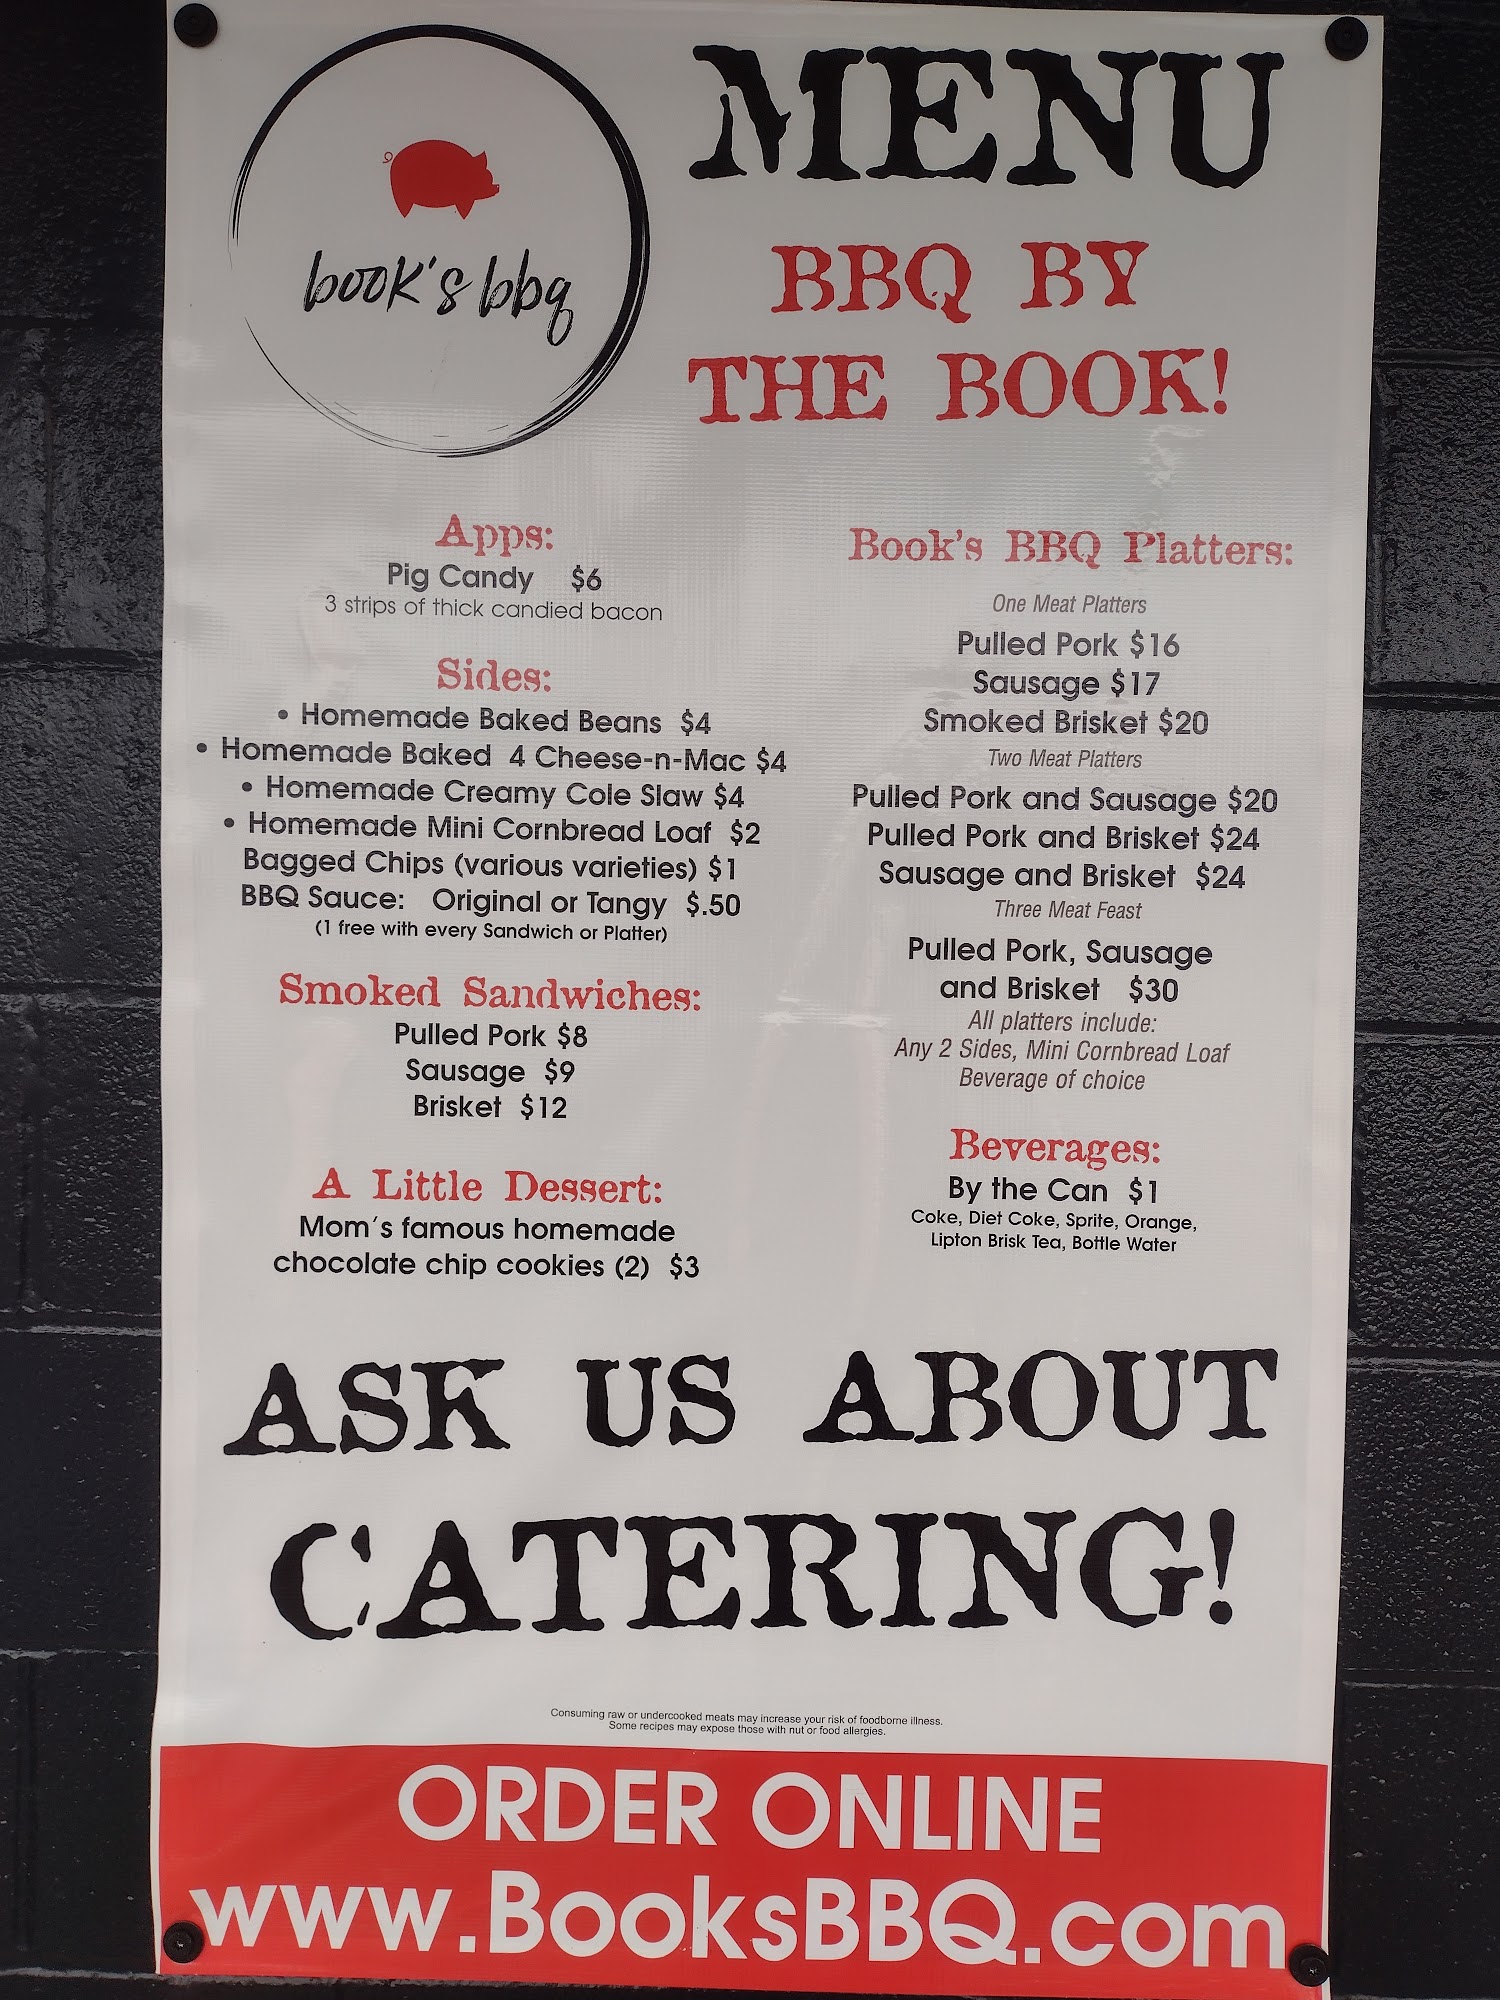 book's bbq
MENU
BBQ BY
THE BOOK!
Apps:
Pig Candy $6
3 strips of thick candied bacon
Sides:
• Homemade Baked Beans $4
• Homemade Baked 4 Cheese-n-Mac $4
• Homemade Creamy Cole Slaw $4
• Homemade Mini Cornbread Loaf $2
Bagged Chips (various varieties) $1
BBQ Sauce: Original or Tangy $.50
(1 free with every Sandwich or Platter)
Smoked Sandwiches:
Pulled Pork $8
Sausage $9
Brisket $12
A Little Dessert:
Mom's famous homemade
chocolate chip cookies (2) $3
Book's BBQ Platters:
One Meat Platters
Pulled Pork $16
Sausage $17
Smoked Brisket $20
Two Meat Platters
Pulled Pork and Sausage $20
Pulled Pork and Brisket $24
Sausage and Brisket $24
Three Meat Feast
Pulled Pork, Sausage
and Brisket $30
All platters include:
Any 2 Sides, Mini Cornbread Loaf
Beverage of choice
Beverages:
By the Can $1
Coke, Diet Coke, Sprite, Orange,
Lipton Brisk Tea, Bottle Water
ASK US ABOUT
CATERING!
Consuming raw or undercooked meats may increase your risk of foodborne illness.
Some recipes may expose those with nut or food allergies.
ORDER ONLINE
www.BooksBBQ.com